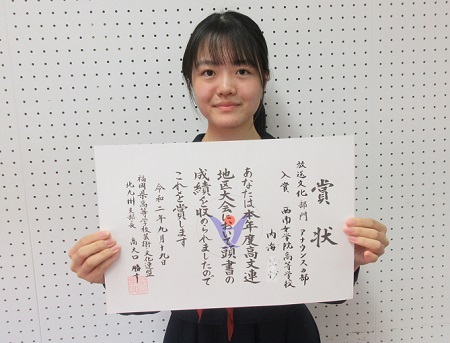 賞状
放送文化部門 アナウンスの部
入賞 西南女学院高等学校
内海
あなたは本年度高文連
地区大会において頭書の
成績を収められましたので
これを賞します
令和二年九月十九日
福岡県高等学校芸術文化連盟
北九州支部長